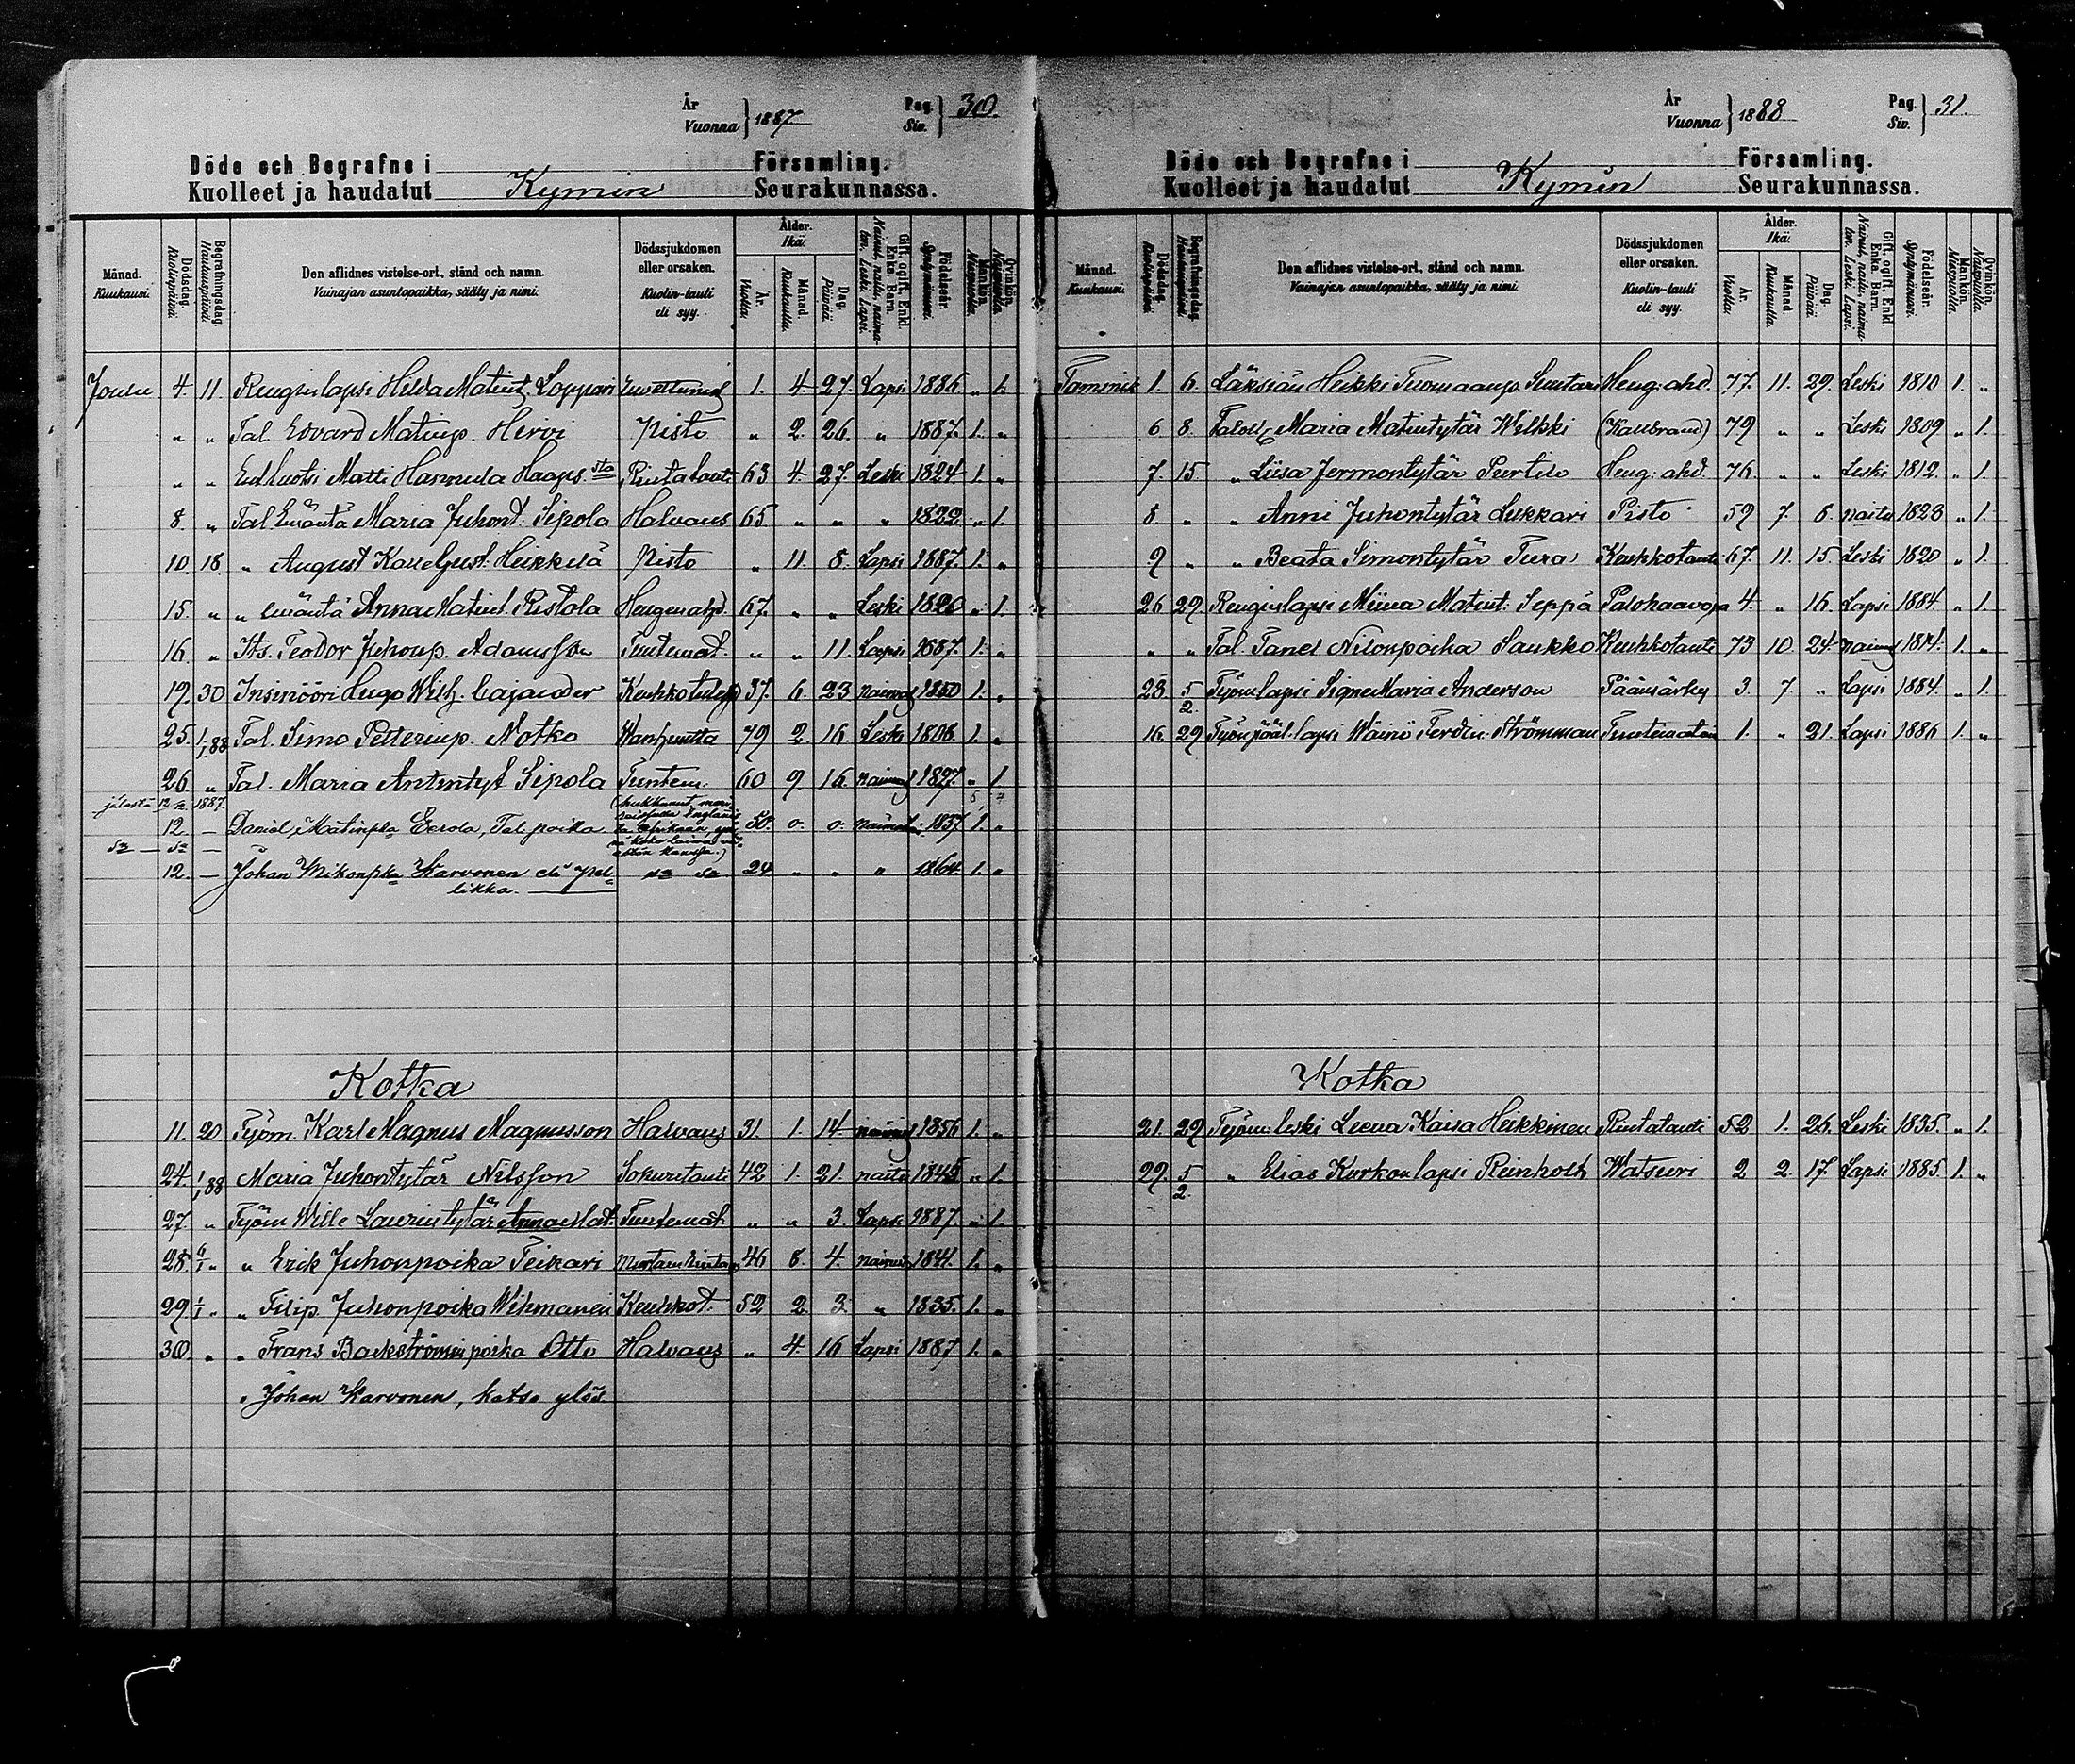 År
Vuonna } 1887
Pag.
Siv. } 30.
Döde och Begrafne i Församling.
Kuolleet ja haudatut Kymin Seurakunnassa.
Månad. Kuukausi.
Dödsdag. Kuolinpäivä.
Begrafningsdag. Hautauspäivä.
Den aflidnes vistelse-ort, stånd och namn. Vainajan asuntopaikka, sääty ja nimi.
Dödssjukdomen eller orsaken. Kuolin-tauti eli syy.
Ålder. Ikä.
År. Vuotta.
Månad. Kuukautta.
Dag. Päivää.
Gift, ogift, Enkl. Enka. Barn. Nainut, naitu, naimaton. Leski. Lapsi.
Födelseår. Syntymävuosi.
Mankön. Miespuolia.
Qvinkön. Naispuolia.
Joulu 4. 11. Rengin lapsi Hilda Matint. Lappari 1. 4. 27. Lapsi 1886 „ 1.
„ „ Tal. Edvard Matinp. Hirvi Pisto „ 2. 26. „ 1887. 1. „
„ „ Matti Hannula Haaps. sta Rintatauti 63 4. 27. Leski 1824 1. „
8. „ Tal Emäntä Maria Juhont. Sipola Halvaus 65 „ „ „ 1822 „ 1.
10. 18. „ August Kalle Just. Heikkilä Pisto „ 11. 8. Lapsi 1887. 1. „
15. „ „ emäntä Anna Matint. Ristola Hengenahd. 67. „ „ Leski 1820 „ 1.
16. „ Its. Teodor Juhonp. Adamsson Tuntemat. „ „ 11. Lapsi 1887. 1. „
19. 30 Insinööri Hugo Wilh. Cajander 37. 6. 23 Nainut 1850 1. „
25. 1/1 88 Tal. Simo Petterinp. Notko Wanhuutta 79 2. 16. Leski 1808 1. „
26. „ Tal. Maria Antintyt Sipola Tuntem. 60 9. 16. Nainut 1827. „ 1
12 1887.
12. — Daniel Matinpka Eerola, Tal. poika (hukkunut 30. 0. 0. naimat. 1857 1. „
12. — Johan Mikonpka Karvonen eli Pel-
likka. 24 „ „ „ 1864 1. „
Kotka
11. 20 Työm. Karl Magnus Magnusson Halvaus 31. 1. 14. nainut 1856 1. „
24. 1/1 88 Maria Juhontytär Nilsson Sokuritauti 42 1. 21. naitu 1845 „ 1.
27. „ Työm Wille Laurintytär Anna Mat. Tuntemat. „ „ 3. Lapsi 1887 „ 1.
28. 6/1 „ „ Erik Juhonpoika Teikari 46 8. 4. Nainut 1841. 1. „
29. 1/1 „ „ Filip Juhonpoika Wihmanen Keuhkot. 52 2 3. „ 1835. 1. „
30. „ „ Frans Backströmin poika Otto Halvaus „ 4. 16 Lapsi 1887 1. „
„ Johan Karvonen, katso ylös.
År
Vuonna } 1888
Pag.
Siv. } 31.
Döde och Begrafne i Församling.
Kuolleet ja haudatut Kymin Seurakunnassa.
Månad. Kuukausi.
Dödsdag. Kuolinpäivä.
Begrafningsdag. Hautauspäivä.
Den aflidnes vistelse-ort, stånd och namn. Vainajan asuntopaikka, sääty ja nimi.
Dödssjukdomen eller orsaken. Kuolin-tauti eli syy.
Ålder. Ikä.
År. Vuotta.
Månad. Kuukautta.
Dag. Päivää.
Gift, ogift, Enkl. Enka. Barn. Nainut, naitu, naimaton. Leski. Lapsi.
Födelseår. Syntymävuosi.
Mankön. Miespuolia.
Qvinkön. Naispuolia.
Tammik 1. 6. Läksiän Heikki Tuomaanp. Suntari Heng: ahd. 77. 11. 29. Leski 1810 1. „
6 8. Maria Matintytär Wilkki (Kallbrand) 79 „ „ Leski 1809 „ 1.
7. 15. „ Liisa Jermontytär Purtilo Heng: ahd. 76. „ „ Leski 1812. „ 1.
8 „ „ Anni Juhontytär Lukkari Pisto 59 7. 8. naitu 1828 „ 1.
9 „ „ Beata Simontytär Tura Keuhkotauti 67. 11. 15. Leski 1820 „ 1
26 29. Rengin lapsi Miina Matint. Seppä Palohaavoja 4. „ 16. Lapsi 1884. „ 1.
„ „ Tal. Tanel Nilonpoika Saukko Keuhkotauti 73 10. 24. nainut 1814. 1. „
28. 5/2. Työm lapsi Signe Maria Anderson Päänsärky 3. 7. „ Lapsi 1884. „ 1.
16. 29 Työnjääl. lapsi Wäinö Ferdin. Strömman Tuntematoin 1. „ 21. Lapsi 1886 1. „
Kotka
21. 29 Työm: leski Leena Kaisa Heikkinen Rintatauti 52 1. 26. Leski 1835. „ 1.
29. 5/2. „ Elias Kurkon lapsi Reinhold Watsuri 2 2. 17. Lapsi 1885. 1. „